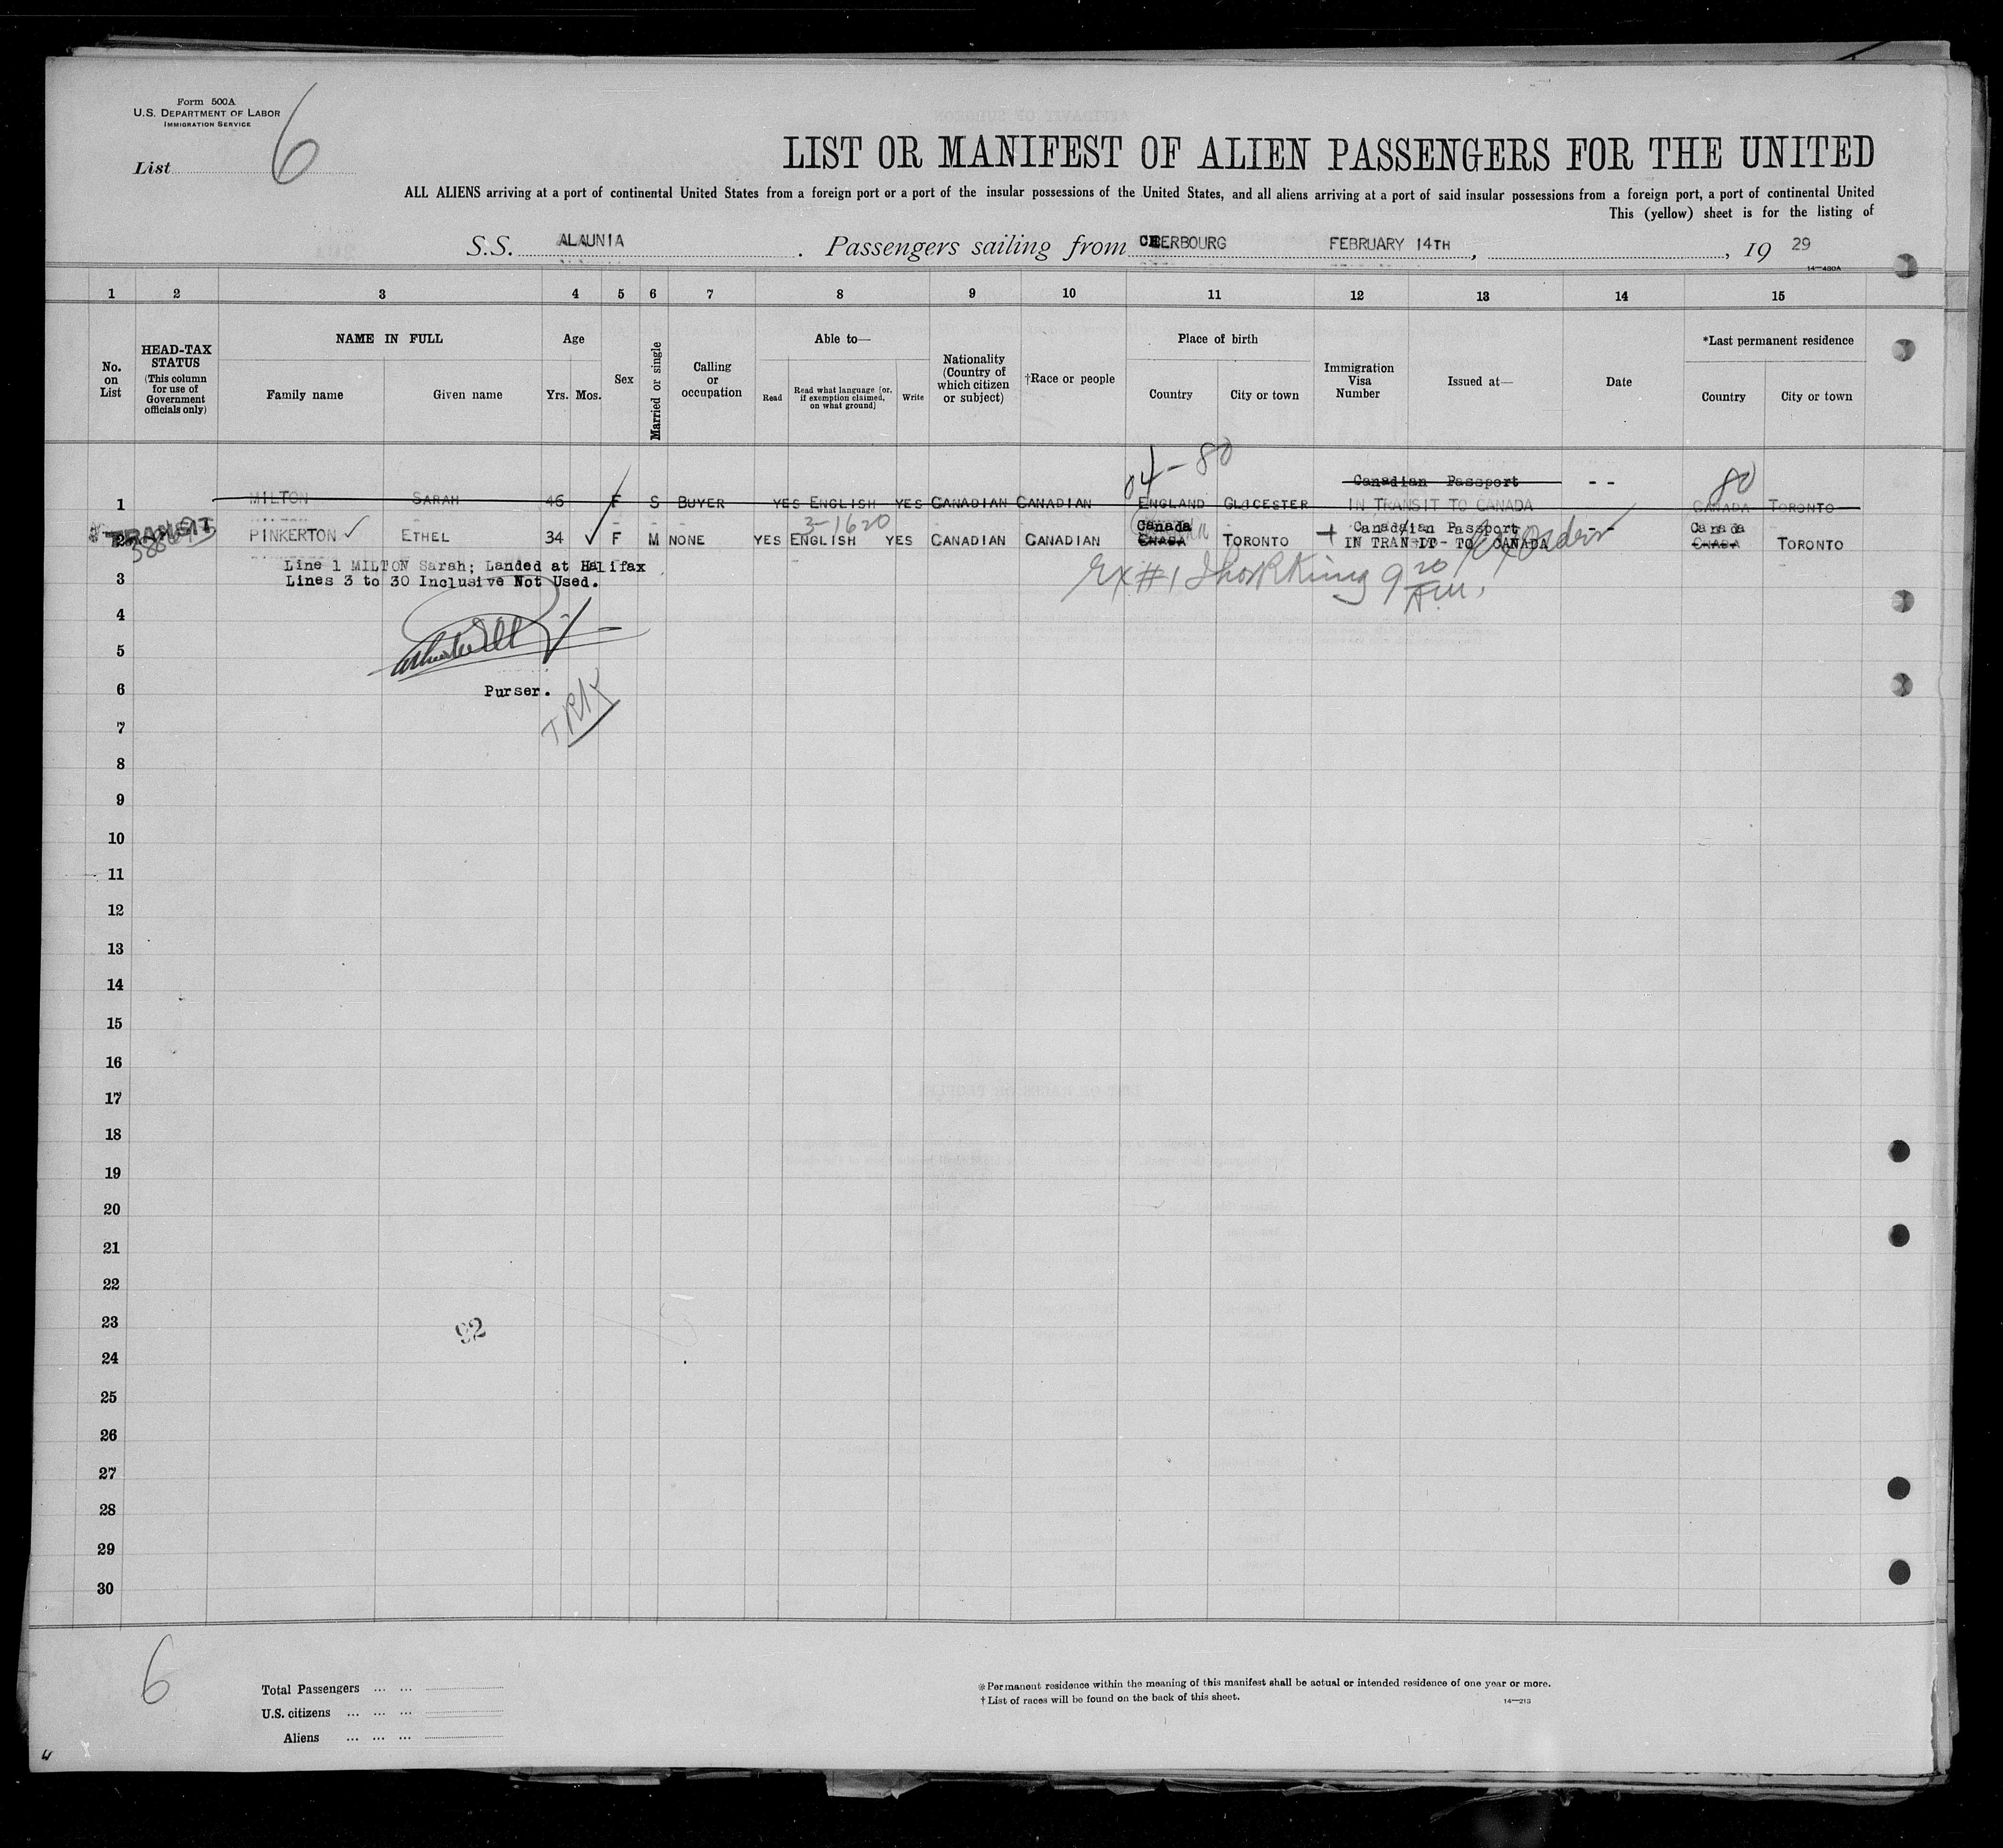 Form 500A
U.S. DEPARTMENT OF LABOR
IMMIGRATION SERVICE
List 6
LIST OR MANIFEST OF ALIEN PASSENGERS FOR THE UNITED
ALL ALIENS arriving at a port of continental United States from a foreign port or a port of the insular possessions of the United States, and all aliens arriving at a port of said insular possessions from a foreign port, a port of continental United
This (yellow) sheet is for the listing of
S.S. ALAUNIA. Passengers sailing from CHERBOURG FEBRUARY 14TH, , 19 29
14—430A
1 2 3 4 5 6 7 8 9 10 11 12 13 14 15
No. on List
HEAD-TAX STATUS (This column for use of Government officials only)
NAME IN FULL
Family name Given name
Age
Yrs. Mos.
Sex
Married or single
Calling or occupation
Able to—
Read Read what language (or, if exemption claimed, on what ground) Write
Nationality (Country of which citizen or subject)
†Race or people
Place of birth
Country City or town
Immigration Visa Number
Issued at—
Date
*Last permanent residence
Country City or town
04-80
Canadian Passport -- 80
1 MILTON SARAH 46 F S BUYER YES ENGLISH YES CANADIAN CANADIAN ENGLAND GLOICESTER IN TRANSIT TO CANADA CANADA TORONTO
TRANSIT 3-1620 Canada Canadian Passport -- Canada
2 PINKERTON ETHEL 34 F M NONE YES ENGLISH YES CANADIAN CANADIAN CNADA TORONTO + IN TRANSIT- TO CANADA CNADA TORONTO
Line 1 MILTON Sarah; Landed at Halifax
3 Lines 3 to 30 Inclusive Not Used.
Ex #1 9 20 A.M.
4
5
6 Purser.
7
8
9
10
11
12
13
14
15
16
17
18
19
20
21
22
23 92
24
25
26
27
28
29
30
6
Total Passengers ... ...
U.S. citizens ... ... ...
Aliens ... ... ...
*Permanent residence within the meaning of this manifest shall be actual or intended residence of one year or more.
†List of races will be found on the back of this sheet.
14—213